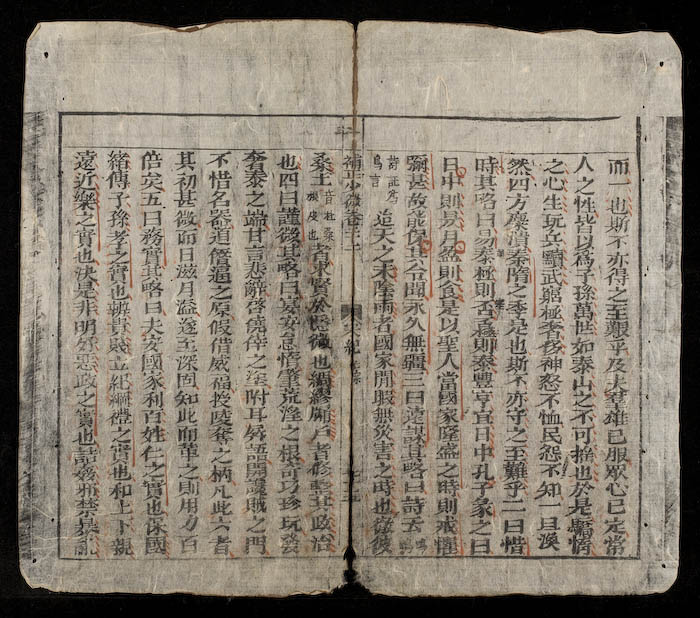 而一也斯不亦得之至艱乎及夫羣雄已服眾心已定常
人之性皆以爲子孫萬世如泰山之不可搖也於是驕惰
之心生玩兵黷武窮極奢侈神怒不恤民怨不知一旦渙
然四方糜潰秦隋之季是也斯不亦守之至難乎二曰惜
時其略曰易泰極則否否極則泰豐亨宜日中孔子象之曰
日中則昃月盈則食是以聖人當國家隆盛之時則戒懼
彌甚故能保其令聞永久無疆三曰遠謀其略曰詩云
迨天之未陰雨者國家閒暇無災害之時也徹彼
補正少微卷三十
桑土者求賢於隱微也綢繆牖戶者修整其政治
也四曰謹微其略曰宴安怠惰肇荒淫之根奇巧珍玩發
奢泰之端甘言悲辭啓僥倖之塗附耳屏語開讒賊之門
不惜名器導僭逼之原假借威福授陵奪之柄凡此六者
其初甚微而日滋月溢遂至深固知此而革之則用力百
倍矣五曰務實其略曰夫安國家利百姓仁之實也保國
緒傳子孫孝之實也辨貴賤立紀綱禮之實也和上下親
遠近樂之實也決是非明好惡政之實也詰姦邪禁暴亂